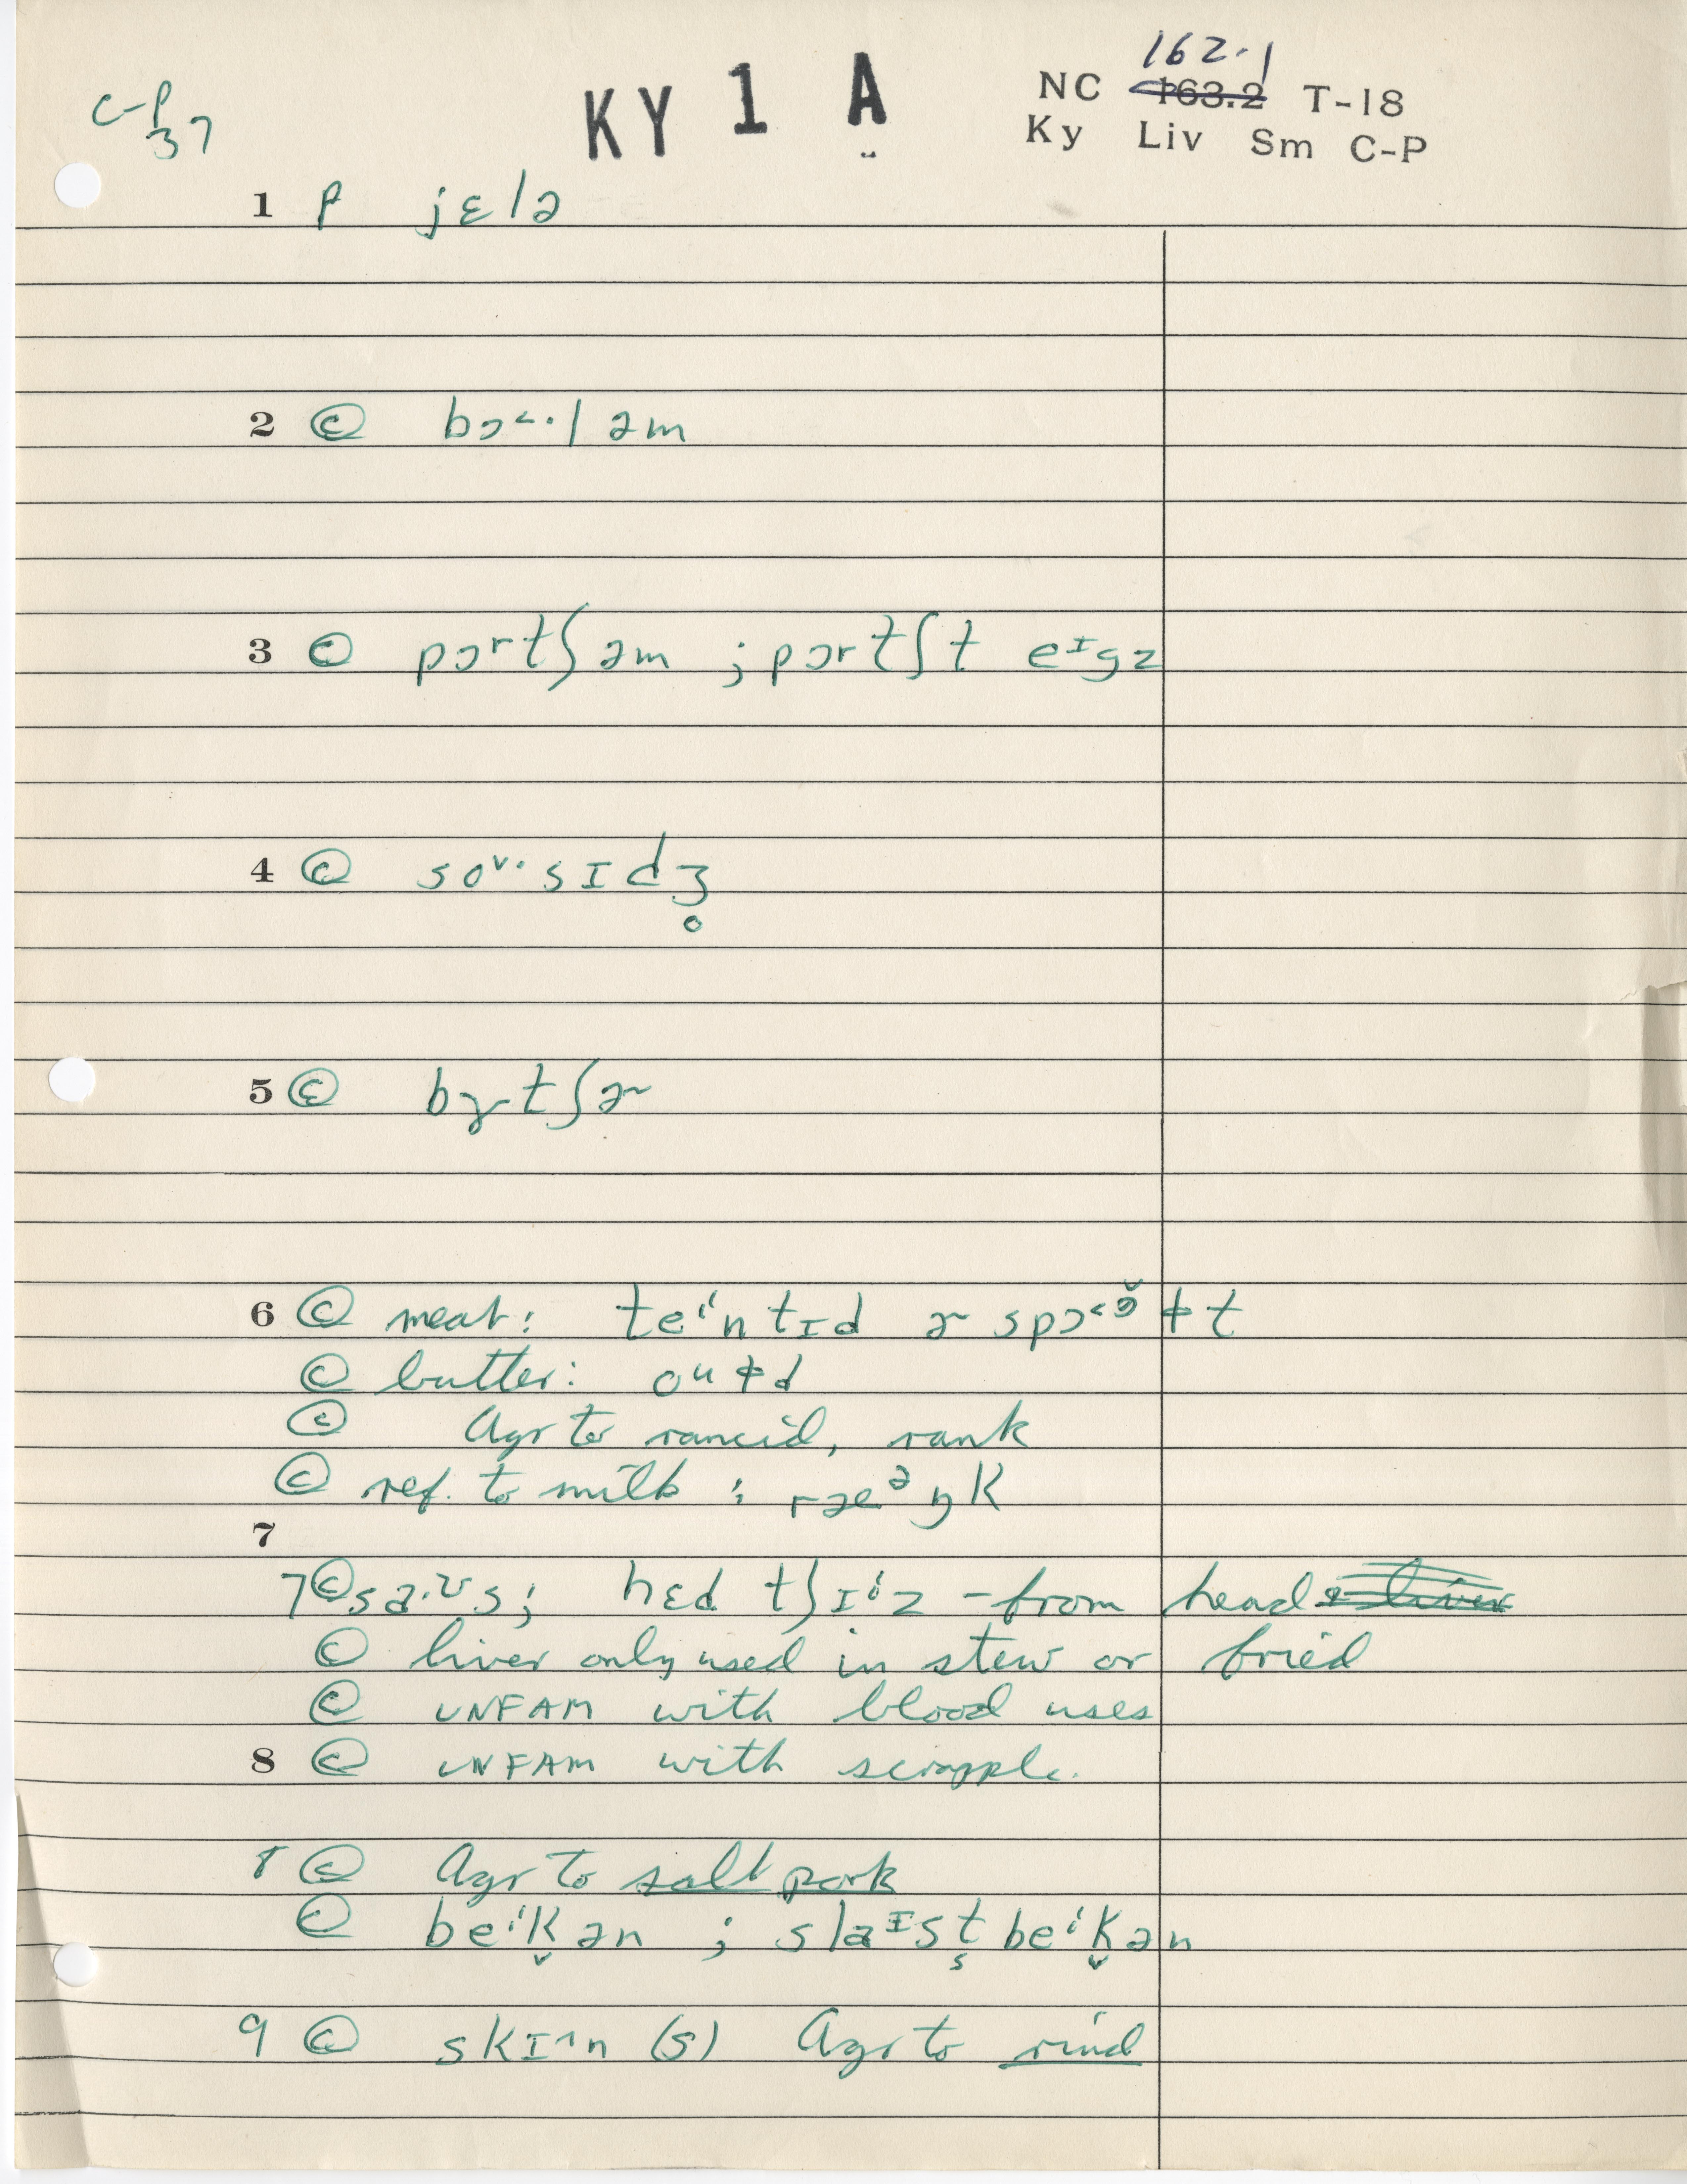 162.1
C-P
37
KY 1 A
NC 163.2 T-18
Ky Liv Sm C-P
1 P jɛlə
2 © bɔ˂·l əm
3 © pɔrtʃ əm ; pɔrtʃt eᶦgz
4 © soᵛ·sɪdʒ̥
5 © bɤtʃɚ
6 © meat: teⁱntɪd ɚ spɔ˂ᵊ̆ɫt
© butter: oᵘɫd
© Agr to rancid, rank
© ref. to milk : ræᵊŋk
7
7 © sa·ᶷs; hɛd tʃɪⁱz – from head & liver
© liver only used in stew or fried
© UNFAM with blood uses
8 © UNFAM with scrapple.
8 © Agr to salt pork
© beⁱk̬ən ; slaᶦst̬ beⁱk̬ən
9 © skɪ^n (s) Agr to rind